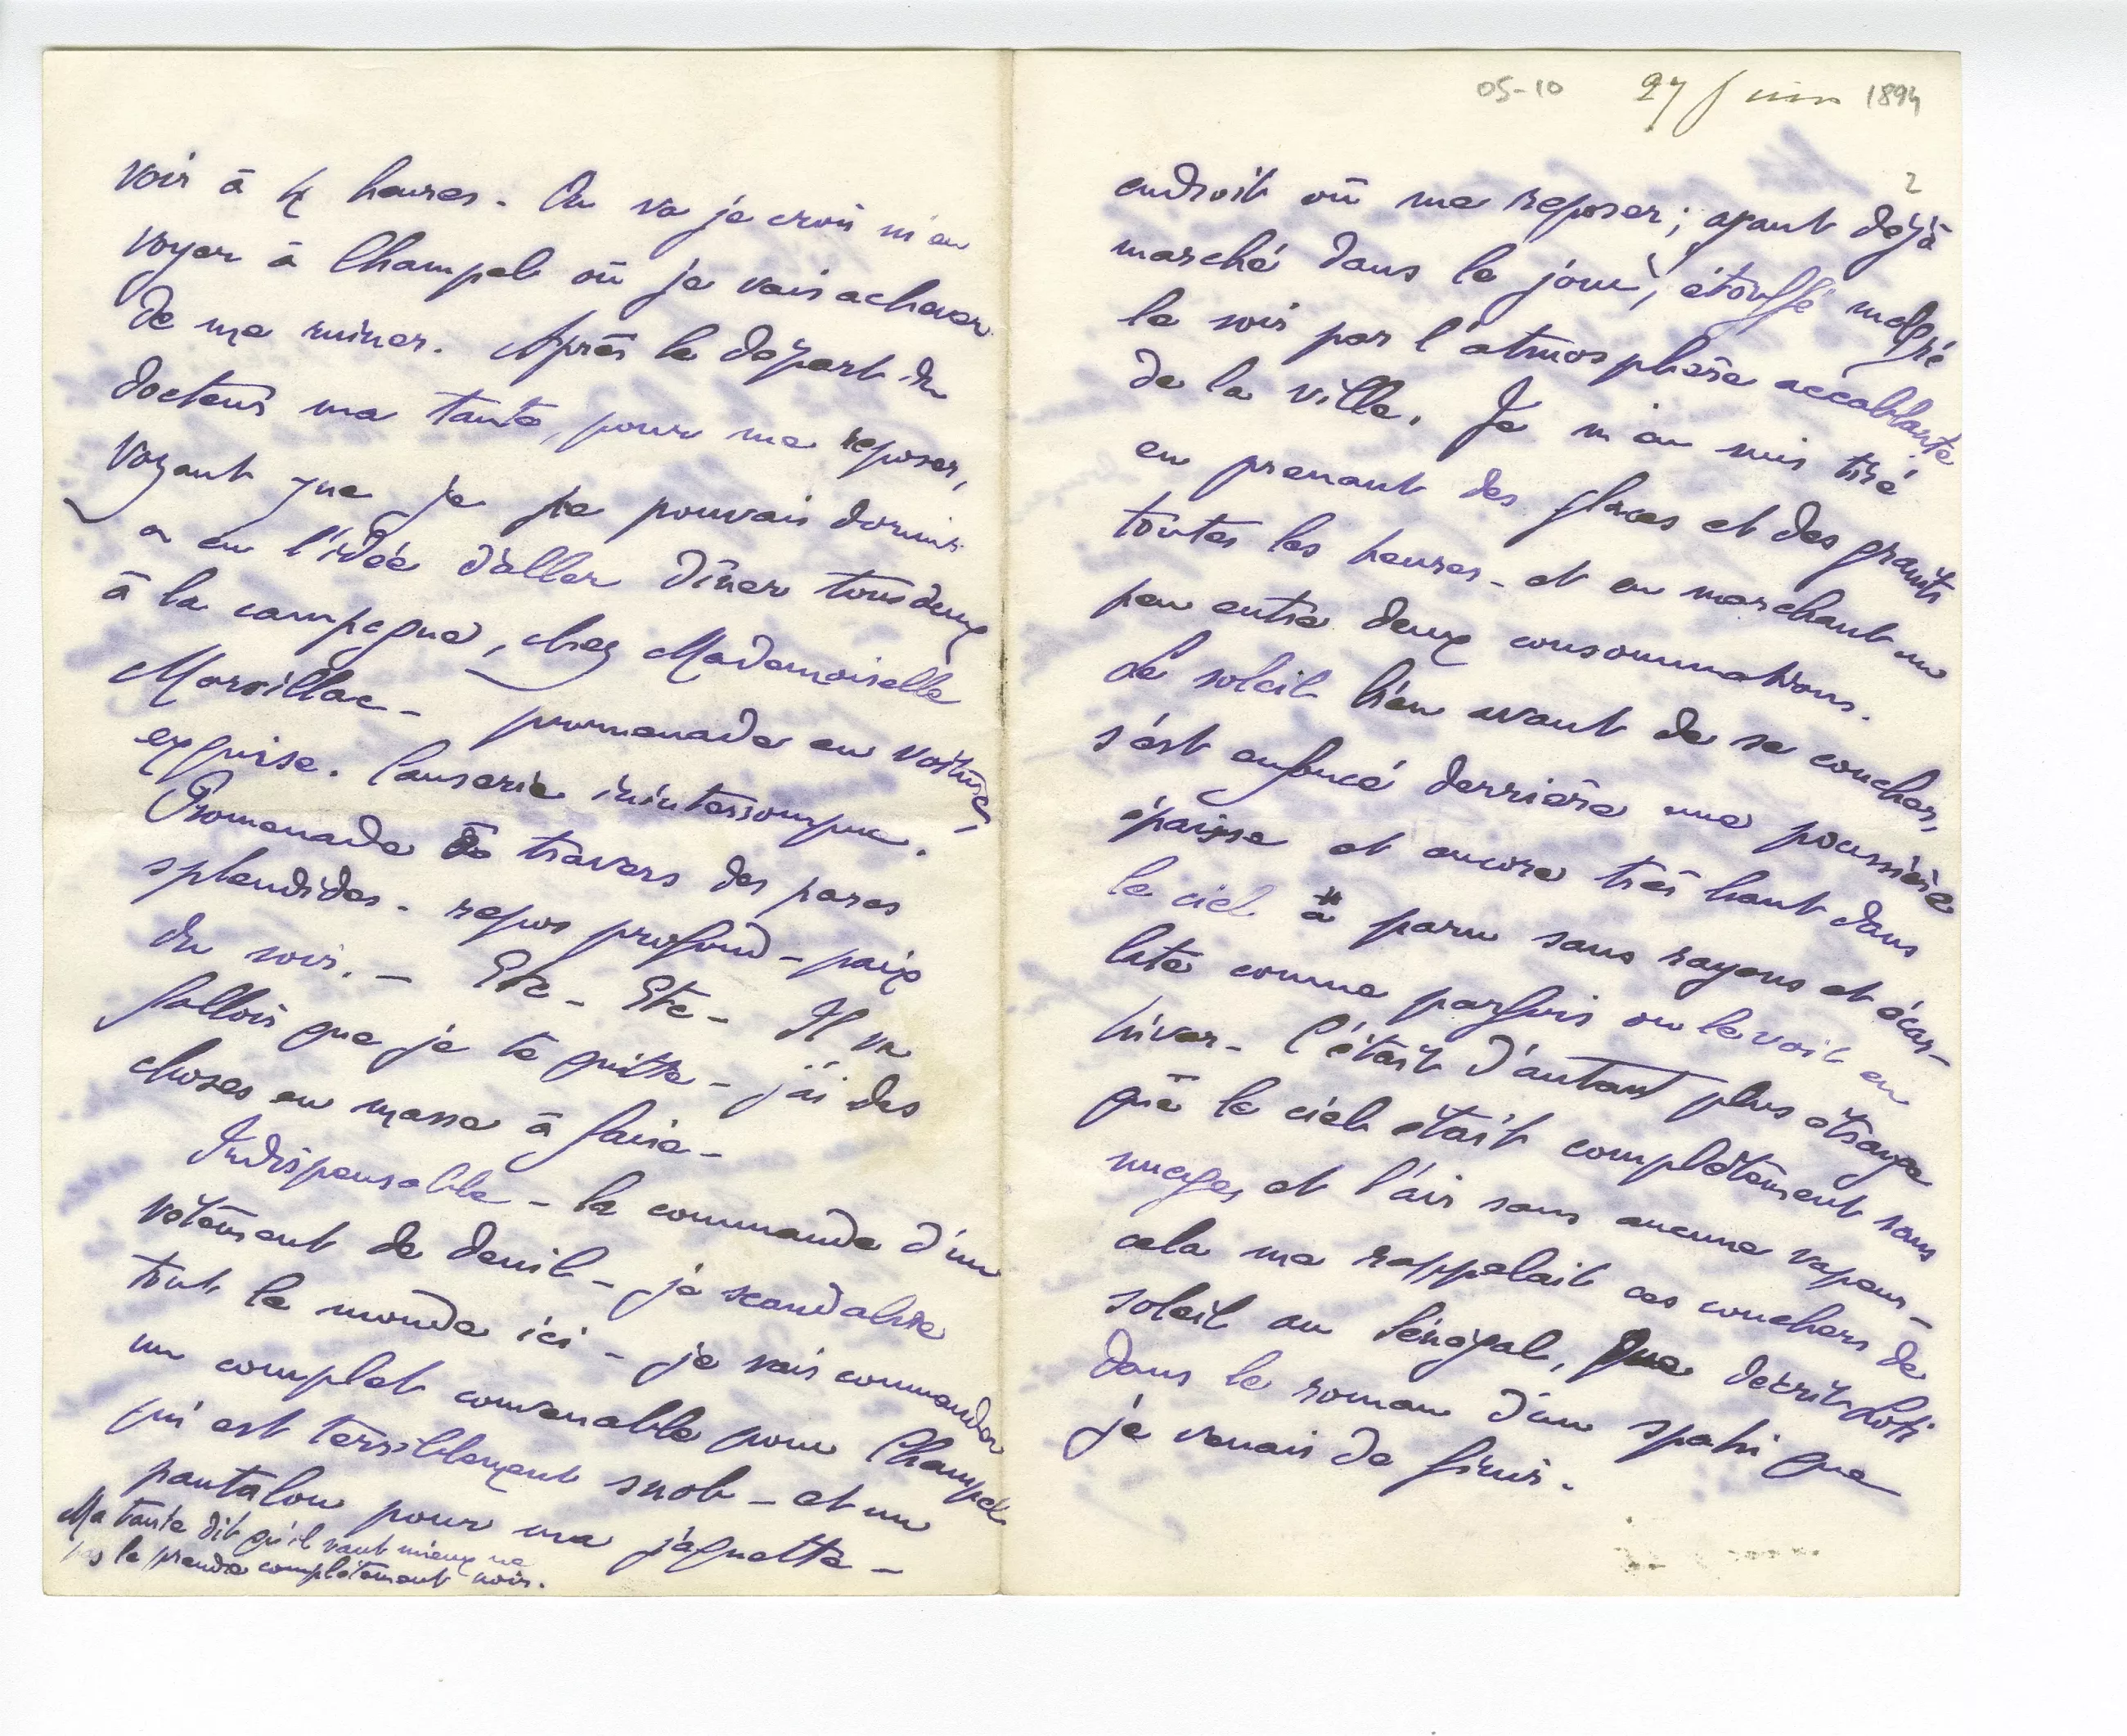 voir à 4 heures. On va je crois m'en
voyer à Champel où je vais achever
de me ruiner. Après le départ du
docteur ma tante, pour me reposer,
voyant que je ne pouvais dormir
a eu l'idée d'aller dîner tous deux
à la campagne, chez Mademoiselle
Marsillac - promenade en voiture,
exquise. Causerie ininterrompue.
Promenade à travers des parcs
splendides. repos profond - paix
du soir. - Etc - Etc - Il va
falloir que je te quitte - j'ai des
choses en masse à faire -
Indispensable - la commande d'un
vêtement de deuil - je scandalise
tout le monde ici - je vais commander
un complet convenable pour Champel
qui est terriblement snob - et un
pantalon pour ma jaquette -
Ma tante dit qu'il vaut mieux ne
pas le prendre complètement noir.
05-10 27 juin 1894
2
endroit où me reposer; ayant déjà
marché dans le jour, étouffé malgré
le soir par l'atmosphère accablante
de la ville. Je m'en suis tiré
en prenant des glaces et des graniti
toutes les heures - et en marchant un
peu entre deux consommations.
Le soleil bien avant de se coucher,
s'est enfoncé derrière une poussière
épaisse et encore très haut dans
le ciel a paru sans rayons et écar-
late comme parfois on le voit en
hiver - C'était d'autant plus étrange
que le ciel était complètement sans
nuages et l'air sans aucune vapeur -
cela me rappelait ces couchers de
soleil au Sénégal, que décrit Loti
dans le roman d'un spahi que
je venais de finir.